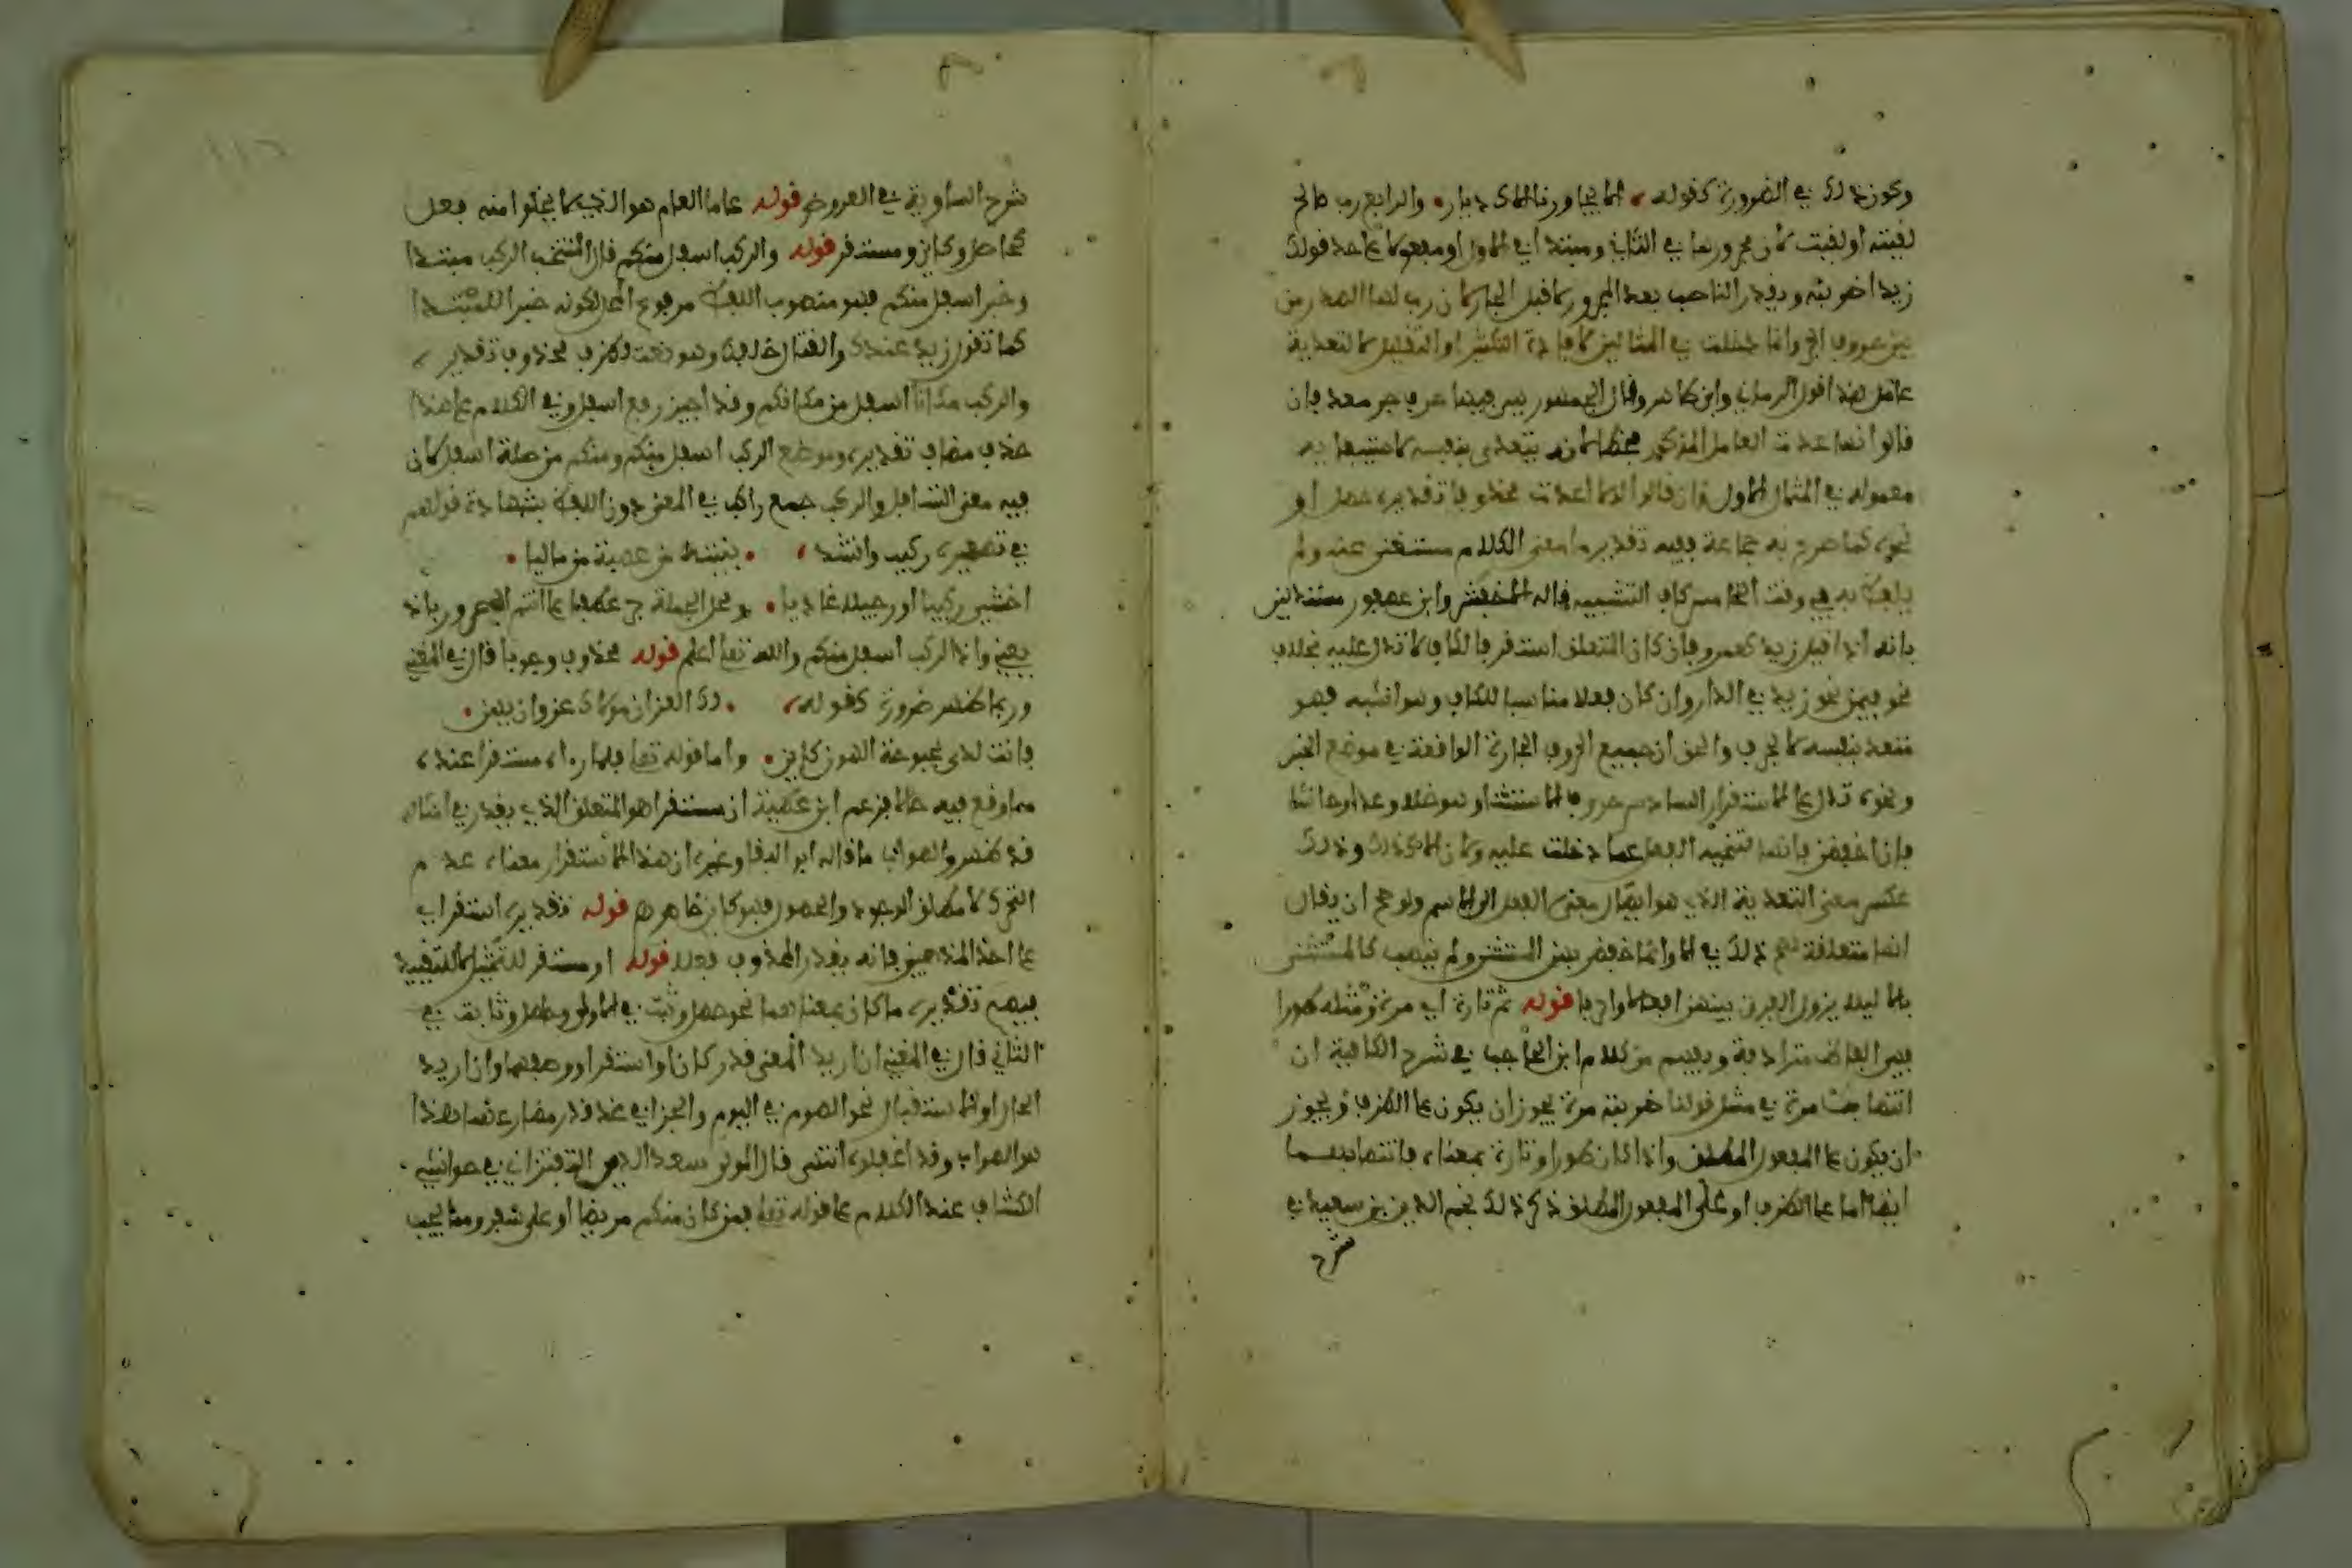 ونحو ذلك في الضرورة كقوله الا يجاورنا الاك ديار والرابع رب صالح
لقيته او لقيت لان مجرورها في الثاني ومبتدا في الاول او مفعول على حد قولك
زيدا ضربته ويقدر الناصب بعد المجرور لا قبل الجار لان رب لها الصدر من
بين حروف الجر وانما دخلت في المثالين لافادة التكثير او التقليل لا لتعدية
عامل هذا قول الرماني وابن طاهر وقال الجمهور هي فيهما حرف جر معد فان
قالوا انها عدت العامل المذكور فخطا لانه يتعدى بنفسه ولاستيفائه
معموله في المثال الاول وان قالوا انها عدت محذوفا تقديره حصل او
نحوه كما صرح به جماعة ففيه تقدير ما معنى الكلام مستغنى عنه ولم
يلفظ به في وقت الخامس كاف التشبيه قاله الاخفش وابن عصفور مستدلين
بانه اذا قيل زيد كعمرو فان كان المتعلق استقر فالكاف لا تدل عليه بخلاف
نحو في من نحو زيد في الدار وان كان فعلا مناسبا للكاف وهو اشبه فهو
متعد بنفسه لا بحرف والحق ان جميع الحروف الجارة الواقعة في موضع الخبر
ونحوه تدل على الاستقرار السادس حروف الاستثناء وهو خلا وعدا وحاشا
فاذا خفضن فانها لتنحية الفعل عما دخلت عليه كما ان الا كذلك وذلك
عكس معنى التعدية الذي هو ايصال معنى الفعل الى الاسم ولو صح ان يقال
انها متعلقة لصح ذلك في الا وانما خفض بهن المستثنى ولم ينصب كالمستثنى
بالا ليلا يزول الفرق بينهن افعالا واحرفا قوله ثم تارة اي مرة ومثله طورا
فهي الفاظ مترادفة ويفهم من كلام ابن الحاجب في شرح الكافية ان
انتصاب مرة في مثل قولنا ضربته مرة يجوز ان يكون على الظرف ويجوز
ان يكون على المفعول المطلق واذا كان طورا وتارة بمعناه فانتصابهما
ايضا اما على الظرف او على المفعول المطلق ذكر ذلك نجم الدين بن سعيد في
شرح
شرح الساوية في العروض قوله عاما العام هو الذي لا يخلوا منه فعل
كحاصل وكاين ومستقر قوله والركب اسفل منكم قال المنتخب الركب مبتدا
وخبر اسفل منكم فهو منصوب اللفظ مرفوع المحل لكونه خبرا للمبتدا
كما تقول زيد عندك والقتال خلفك وهو نعت لظرف محذوف تقديره
والركب مكانا اسفل من مكانكم وقد اجيز رفع اسفل وفي الكلام على هذا
حذف مضاف تقديره وموضع الركب اسفل منكم ومنكم من صلة اسفل لان
فيه معنى التسافل والركب جمع راكب في المعنى دون اللفظ بشهادة قولهم
في تصغيره ركيب وانشد بنيته من عصبة من ماليا
اخشى ركيبا او رجيلا غاديا ومحل الجملة جر عطفا على انتم المجرور باذ
يعني واذ الركب اسفل منكم والله تعالى اعلم قوله محذوف وجوبا قال في المغني
وربما ظهر ضرورة كقوله لك العز ان مولاك عز وان يهن
فانت لدى بحبوحة الهون كاين واما قوله تعالى فلما رءاه مستقرا عنده
مما وقع فيه حالا فزعم ابن عطية ان مستقرا هو المتعلق الذي يقدر في امثاله
قد ظهر والصواب ما قاله ابو البقا وغيره ان هذا الاستقرار معناه عدم
التحرك لا مطلق الوجود والحصول فهو كاين خاص قوله تقديره استقر اي
على احد المذهبين فانه يقدر المحذوف فعلا قوله او مستقر للتمثيل لا للتقييد
فيهم تقديره ما كان بمعناهما نحو حصل وثبت في الاول وحاصل وثابت في
الثاني قال في المغني ان اريد المعنى قدر كان او استقر او وصفهما وان اريد
الحال او الاستقبال نحو الصوم في اليوم والجزا في غد قدر مضارعهما هذا
هو الصواب وقد اغفلوه انتهى قال المولى سعد الدين التفتزاني في حواشيه
الكشاف عند الكلام على قوله تعالى فمن كان منكم مريضا او على سفر ومما يجب